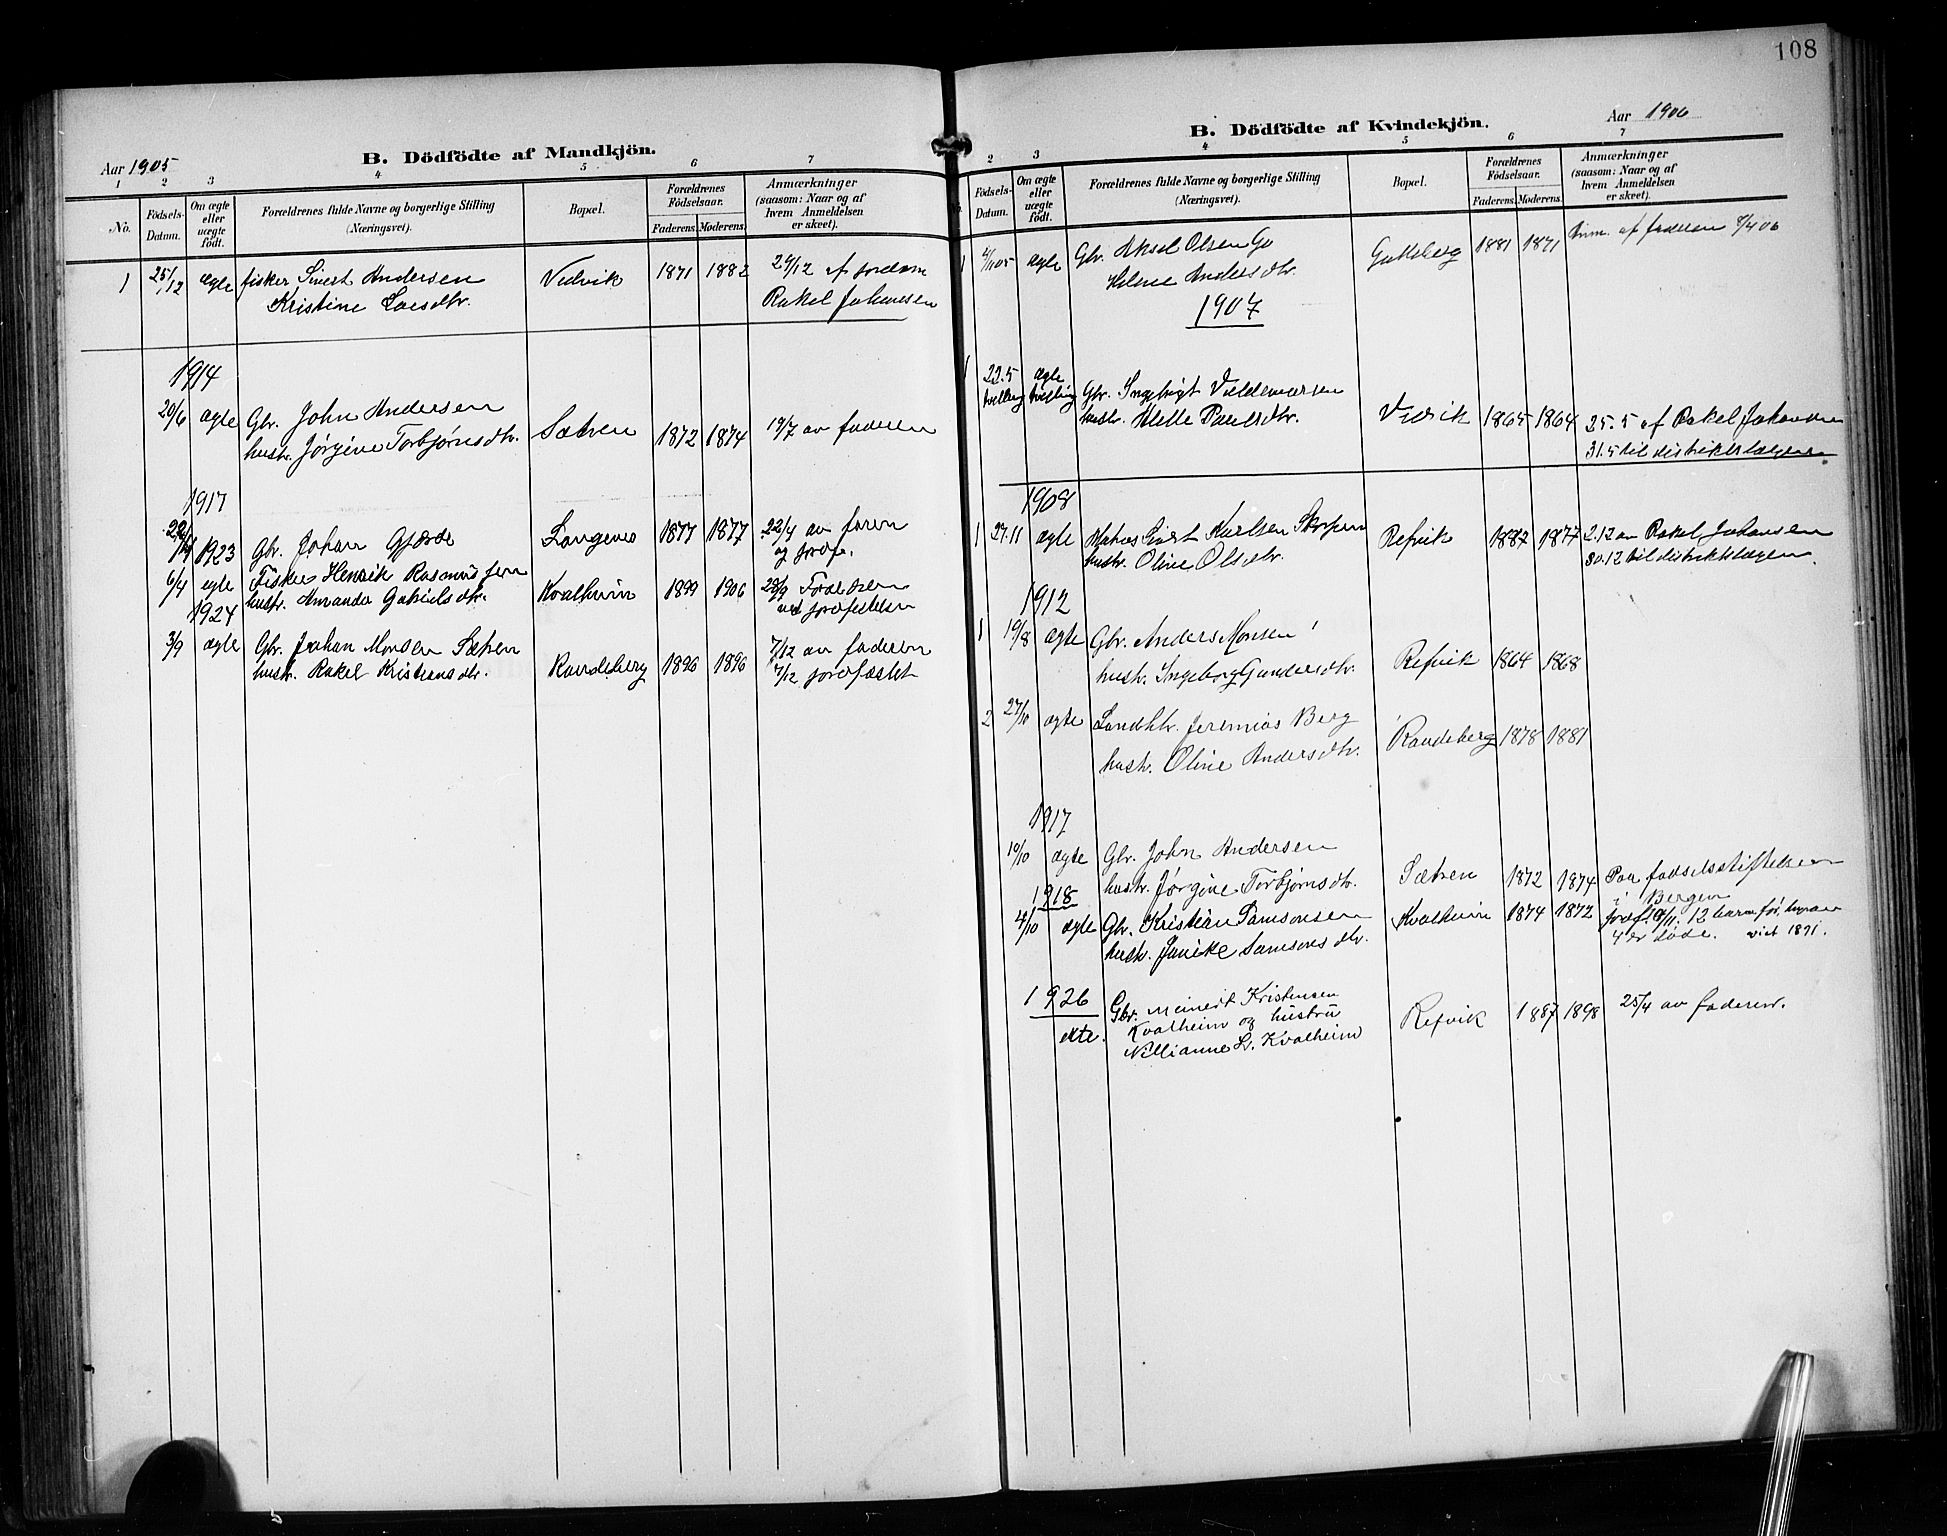 108
Aar 1905
B. Dödfödte af Mandkjön.
1 2 3 4 5 6 7
No.
Födsels-Datum.
Om ægte eller uægte födt.
Forældrenes fulde Navne og borgerlige Stilling (Næringsvei).
Bopæl.
Forældrenes Födselsaar.
Faderens. Moderens.
Anmærkninger (saasom: Naar og af hvem Anmeldelsen er skeet).
1 25/12 ægte fisker Sivert Andersen Vedvik 1871 1882 29/12 af jordm
Kristine Larsdtr. Rakel Johansen
1914
20/6 ægte Gbr. John Andersen Sætren 1872 1874 19/7 av faderen
hustr. Jørgine Torbjørnsdtr.
1917
Gbr. Johan Gjærde Langenes 1877 1877 22/4 av faren
og prof.
1923
6/4 egte Fisker Henrik Rasmussen Kvalheim 1899 1906
hustr. Amanda Gabrielsdtr.
1924
3/9 ægte Gbr. Johan Monsen Sætren Raudeberg 1896 1896 7/12 av faderen
hustr. Rakel Kristiansdtr. 7/12 profastet
B. Dödfödte af Kvindekjön.
Aar 1906
2 3 4 5 6 7
Födsels-Datum.
Om ægte eller uægte födt.
Forældrenes fulde Navne og borgerlige Stilling (Næringsvei).
Bopæl.
Forældrenes Födselsaar.
Faderens. Moderens.
Anmærkninger (saasom: Naar og af hvem Anmeldelsen er skeet).
1 ægte Gbr. Aksel Olsen og 1881 1871 Anm. af faderen 8/4 06
Helene Andersdtr.
1907
1 22.5 ægte Gbr. Ingebrigt Valdemarsen
tvilling tvilling hustr. Helle Paulsdtr. Vedvik 1865 1864 25.5 af Rakel Johansen
31.5 til distriktslægen
1908
1 27.11 ægte Matros Sivert Karlsen Skorpen Refvik 1887 1877 2.12 av Rakel Johansen
hustr. Oline Olsdtr. 30.12 til distriktslægen.
1912
1 19/8 ægte Gbr. Anders Monsen
hustr. Ingeborg Gundersdtr. Refvik 1864 1868
2 27/10 ægte Landh. Jeremias Berg Raudeberg 1878 1881
hustr. Oline Andersdtr.
1917
19/10 ægte Gbr. John Andersen
hustr. Jørgine Torbjørnsdtr. Sætren 1872 1874 Paa fødselsstiftelsen
i Bergen
1918
4/10 ægte Gbr. Kristian Samsonsen Kvalheim 1874 1872 12 barn før, hvorav
hustr. Janike Samsonsdtr. 4 er døde. viet 1891.
1926
ekte. Gbr. Meinert Kristensen Refvik 1887 1898 25/4 av faderen.
Kvalheim og hustru
Nillianne L. Kvalheim